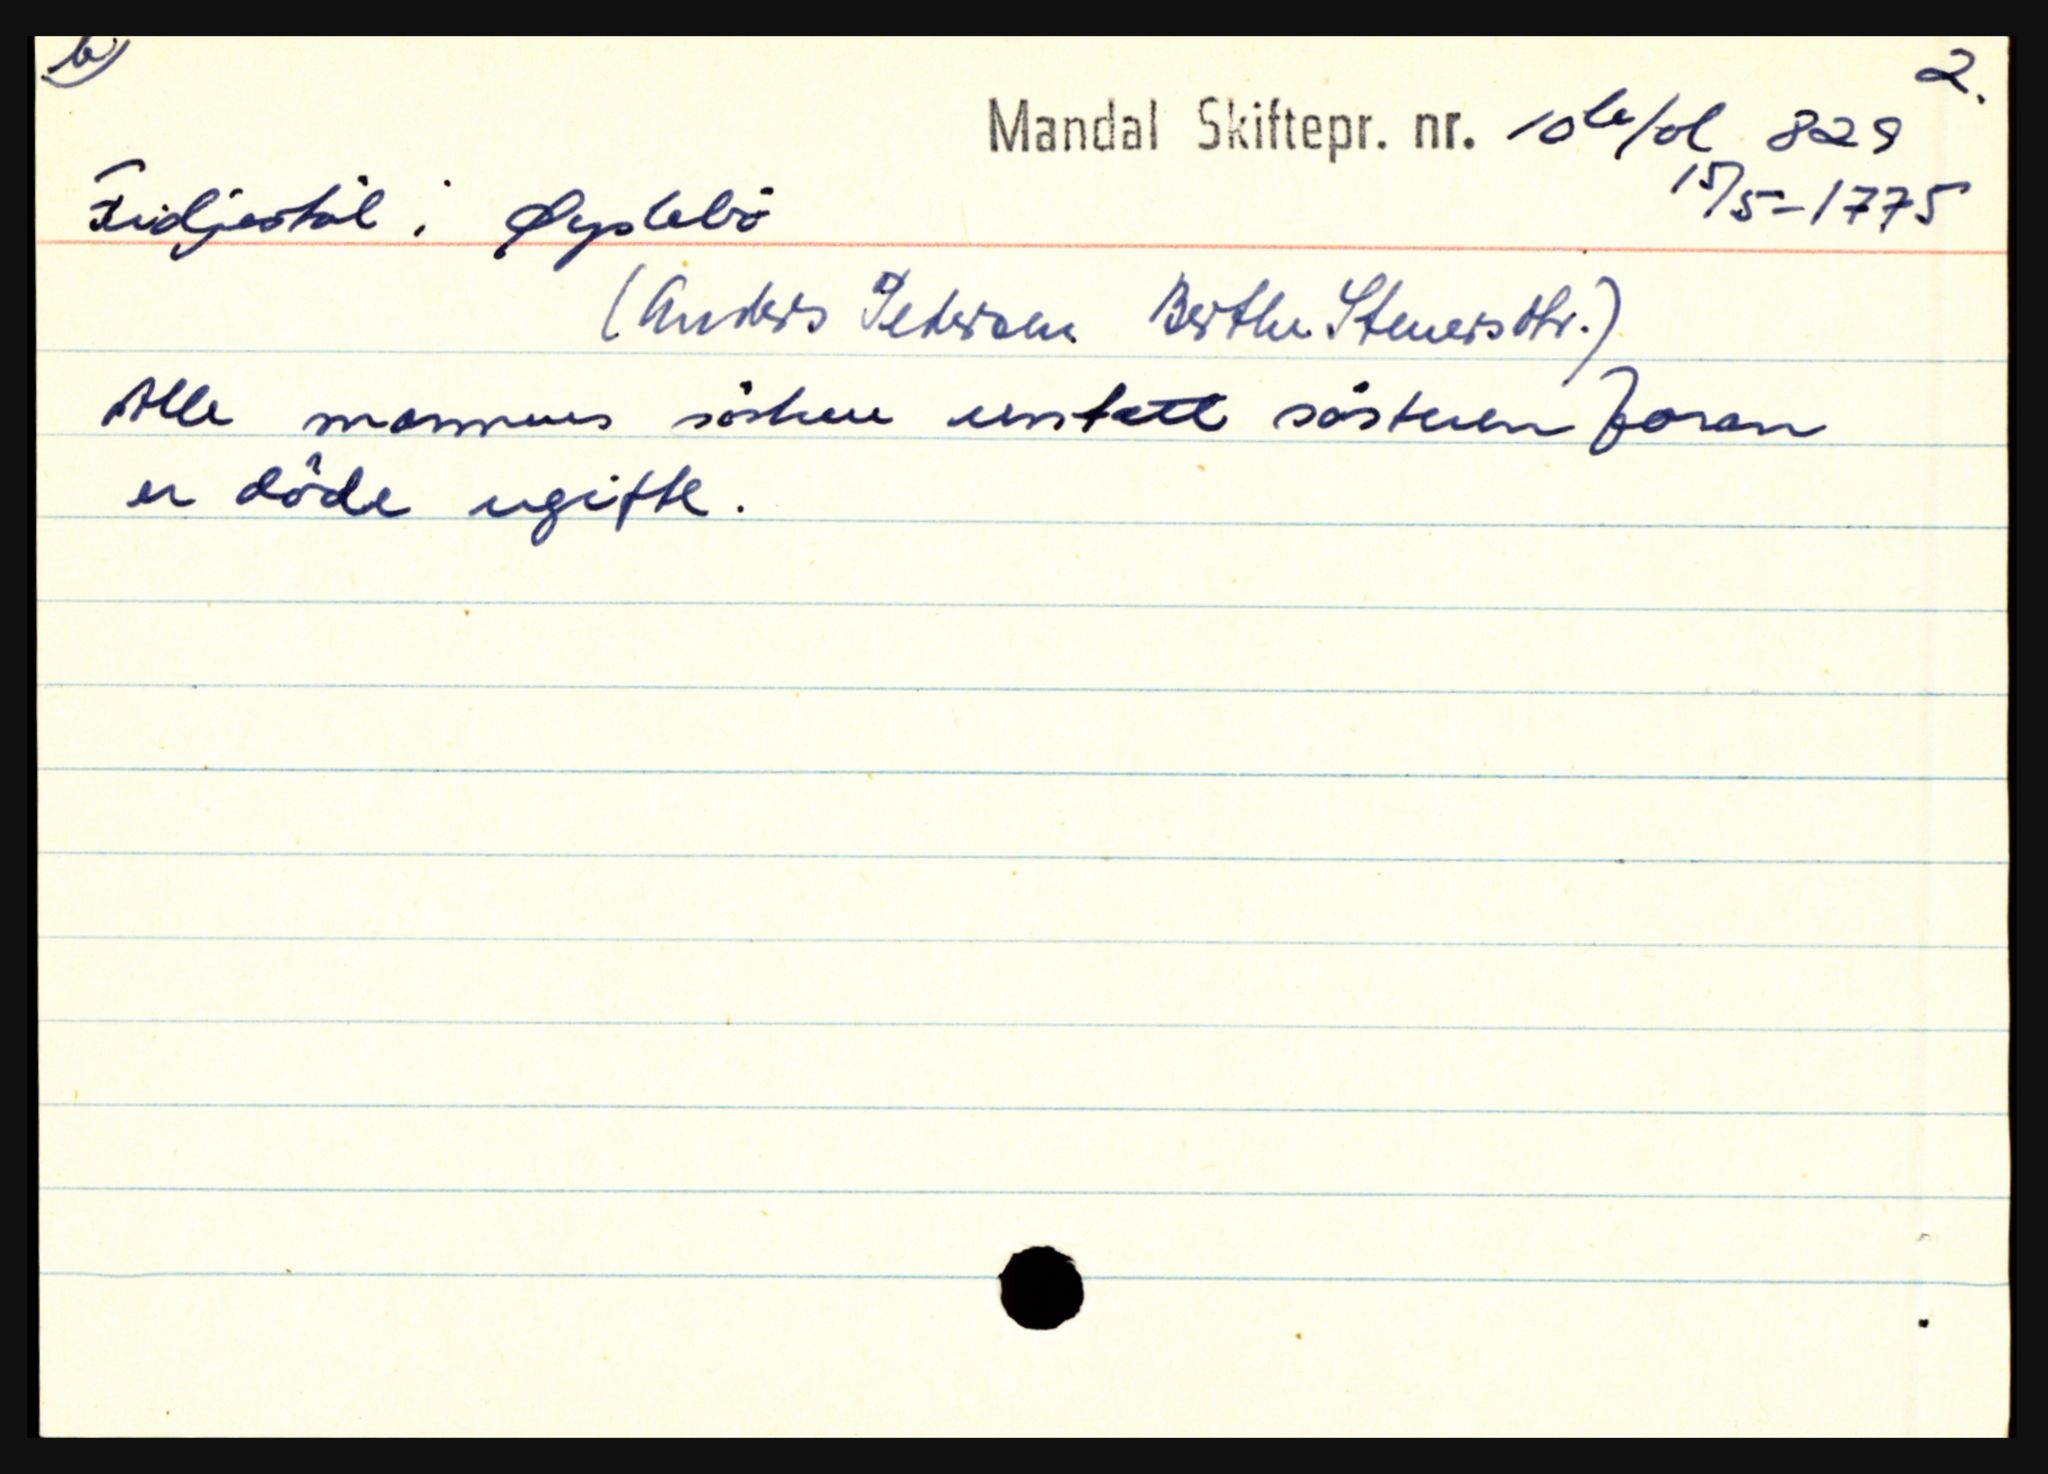 b) 2.
Mandal Skiftepr. nr. 10b/ol 829
Fidjestøl i Øyslebö 15/5-1775
(Anders Pedersen Berthe Stenersdtr.)
Alle mannens sösken untatt sösteren foran
er döde ugifte.